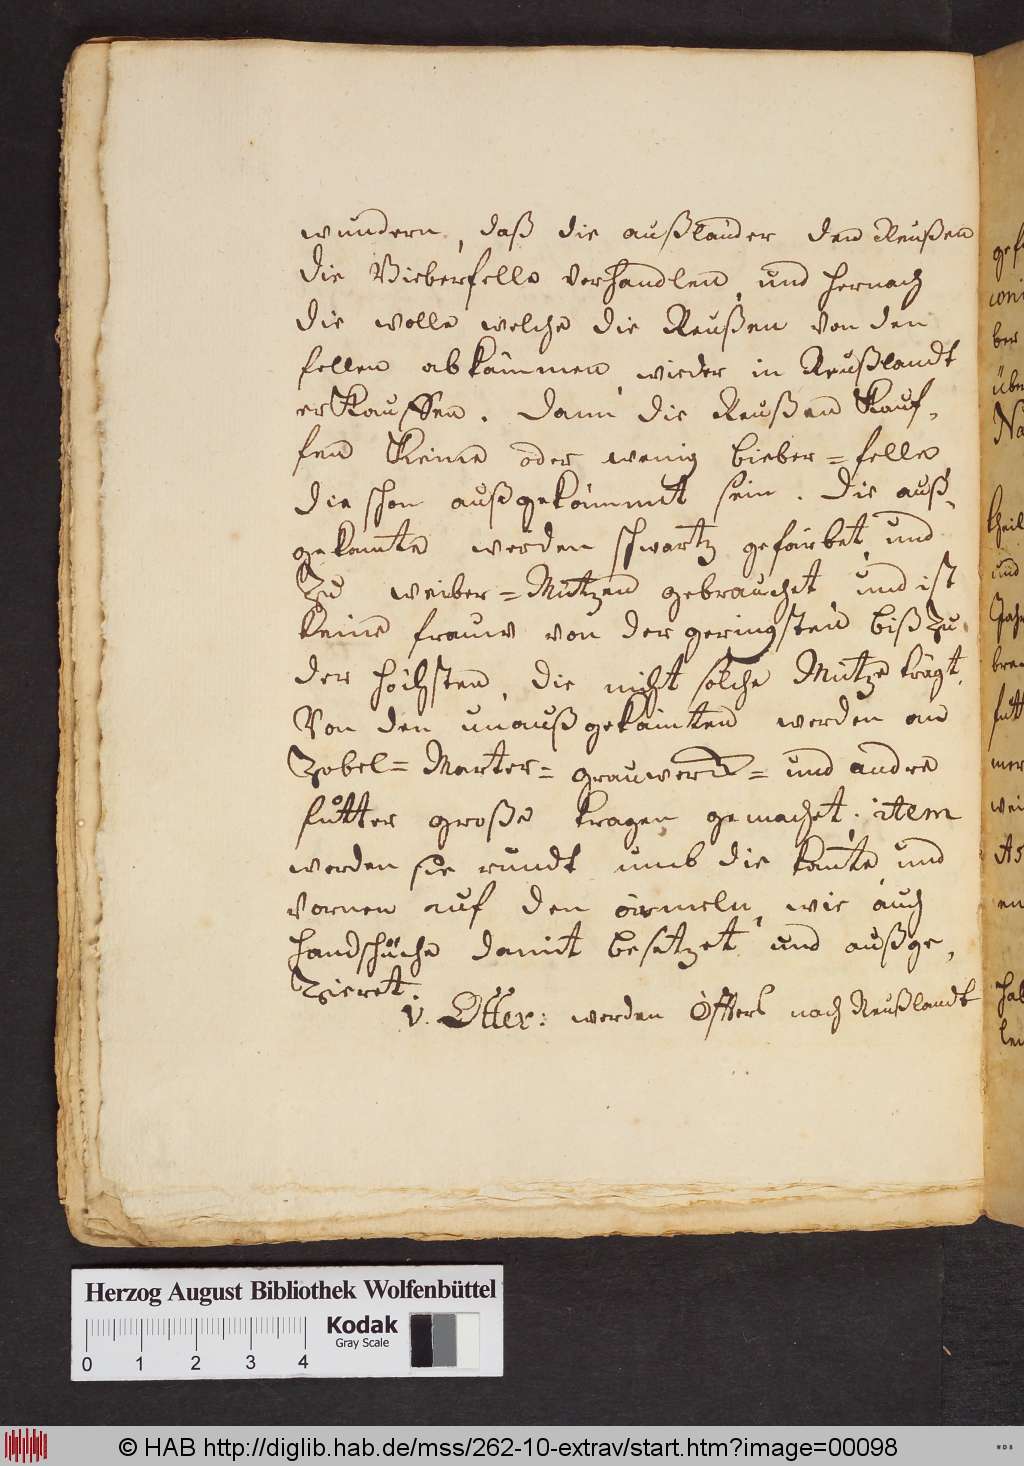 wundern, daß die außländer den Reußen
die Bieberfelle verhandlen, und hernach
die wolle welche die Reußen von den
fellen abkämmen, wieder in Reußlandt
erkauffen. Dann die Reußen kauf-
fen keine oder wenig bieber=felle
die schon außgekämmt sein. Die auß-
gekämte werden schwartz gefärbet, und
zu weiber=Mützen gebrauchet, und ist
keine frauw von der geringsten biß zu
der höchsten, die nicht solche Mütze trägt.
Von den unaußgekämten werden an
Zobel= Marter= grauwerck= und andre
futter große kragen gemachet; item
werden sie rundt umb die kante, und
vornen auf den ärmeln, wie auch
handschuche damit besetzet und außge-
zieret.
v. Otter: werden öffters nach Reußlandt
gef
ber
übe
Na
theil
und
Jah
bra
futt
mer
wei
As
en
hal
len
Herzog August Bibliothek Wolfenbüttel
Kodak
Gray Scale
0 1 2 3 4
© HAB http://diglib.hab.de/mss/262-10-extrav/start.htm?image=00098